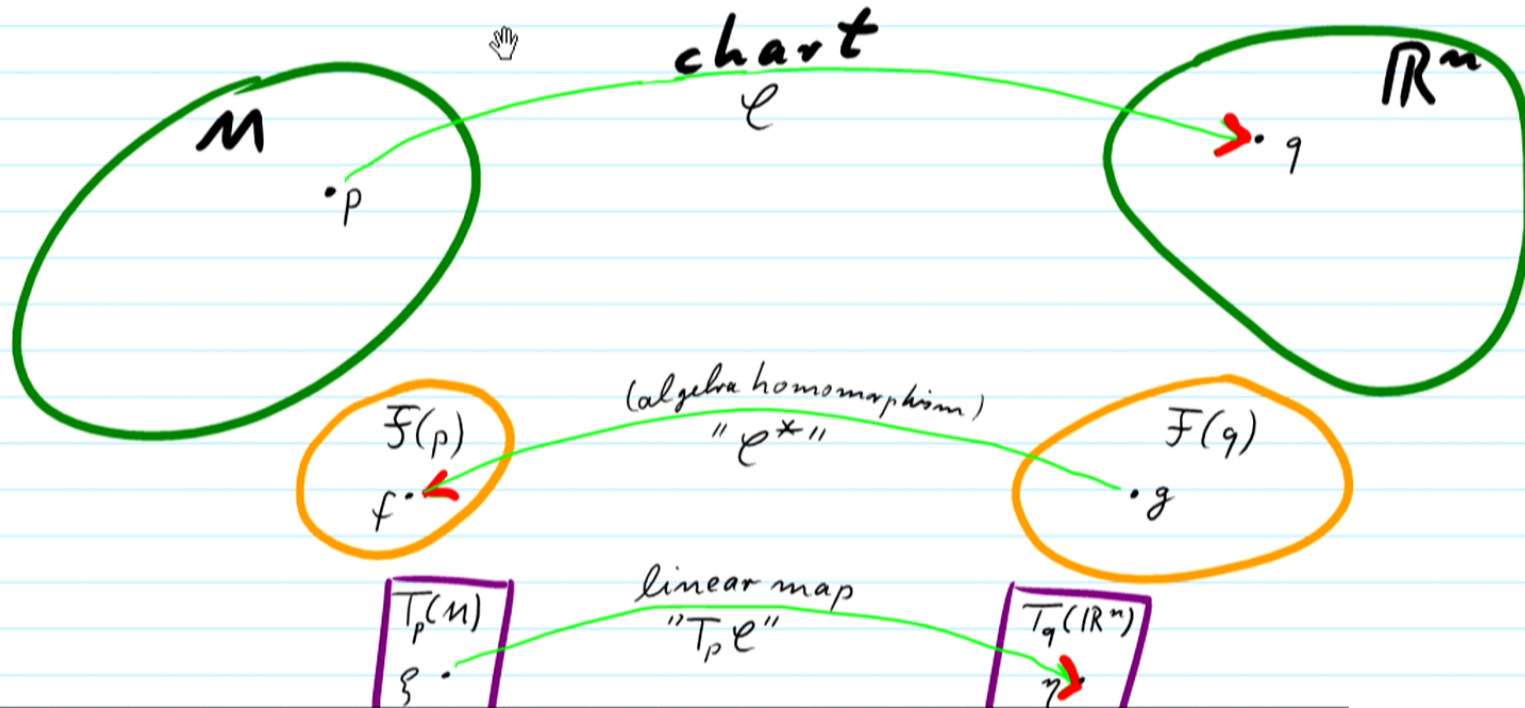 chart
φ
M
ℝⁿ
• p
• q
(algebra homomorphism)
"φ*"
F(p)
F(q)
f •
• g
linear map
"Tₚφ"
Tₚ(M)
T_q(ℝⁿ)
ξ •
η •